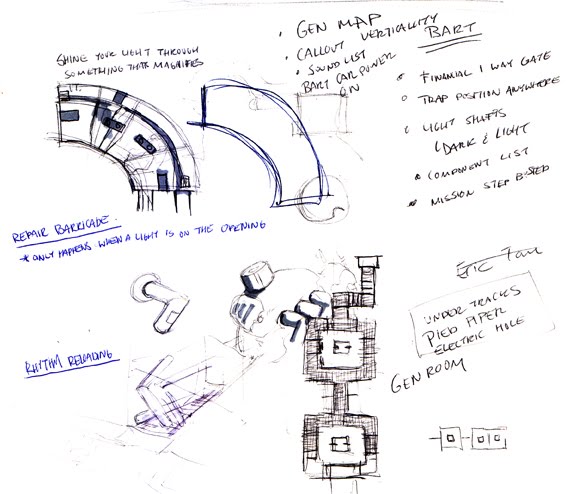 SHINE YOUR LIGHT THROUGH
SOMETHING THAT MAGNIFIES
• GEN MAP
• CALLOUT VERTICALITY
• SOUND LIST
BART CAR POWER
ON
BART
FINANIAL 1 WAY GATE
TRAP POSITION ANYWHERE
LIGHT SHAFTS
(DARK & LIGHT
COMPONENT LIST
MISSION STEP BY STEP
REPAIR BARRICADE.
* ONLY HAPPENS WHEN A LIGHT IS ON THE OPENING
RHYTHM RELOADING
UNDER TRACKS
PIED PIPER
ELECTRIC HOLE
GEN ROOM